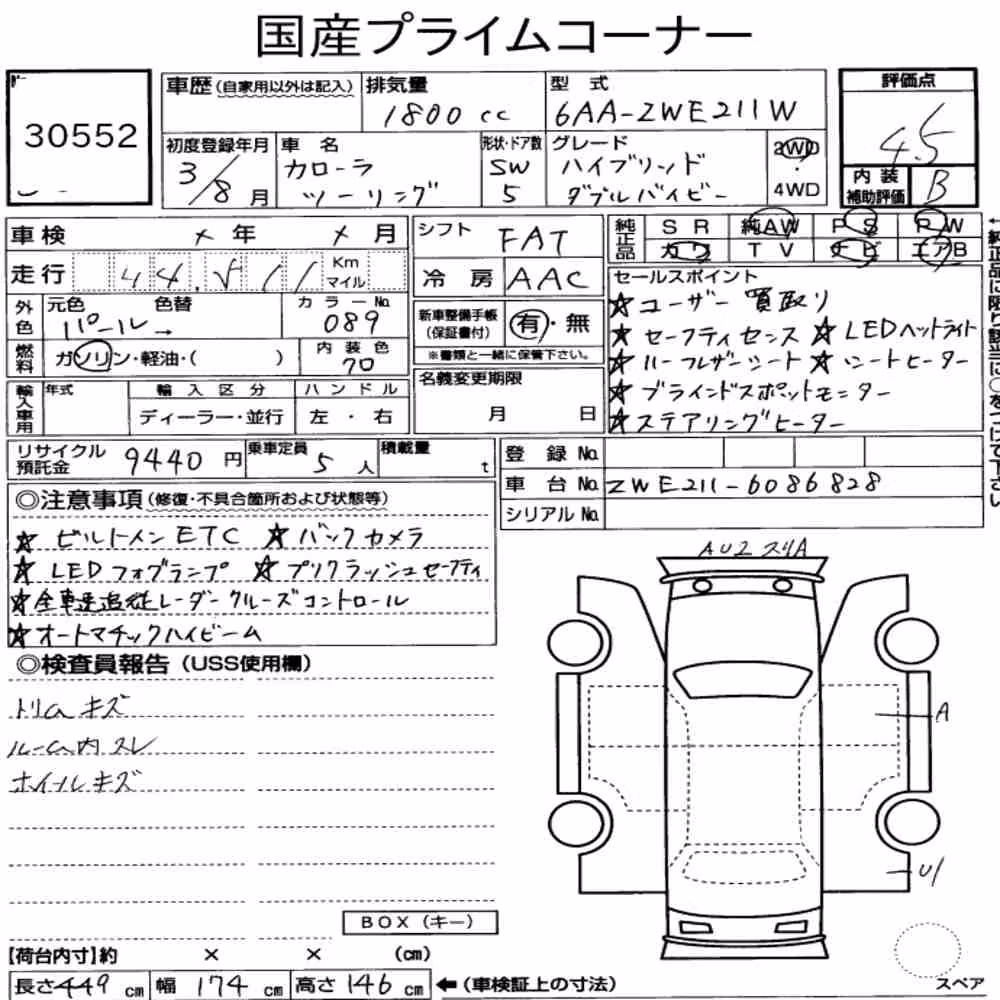 国産プライムコーナー
30552
車歴 (自家用以外は記入)
排気量
1800 cc
型 式
6AA-ZWE211W
評価点
4.5
初度登録年月
3/8 月
車 名
カローラ
ツーリング
形状・ドア数
SW
5
グレード
ハイブリッド
ダブルバイビー
2WD
・
4WD
内 装
補助評価
B
車検 メ 年 メ 月
シフト FAT
純正品
S R 純AW P S P W
カワ T V ナビ エアB
走行 44,511 Km マイル
冷 房 AAC
←純正品に限り該当に○をつけて下さい
外色 元色 色替 カラーNo.
パール → 089
新車整備手帳
(保証書付)
有・無
※書類と一緒に保管下さい。
燃料 ガソリン・軽油・( ) 内 装 色
70
セールスポイント
☆ユーザー買取り
☆セーフティセンス ☆LEDヘッドライト
☆ハーフレザーシート ☆シートヒーター
☆ブラインドスポットモニター
☆ステアリングヒーター
名義変更期限
月 日
輸入車用 年式 輸 入 区 分 ハ ン ド ル
ディーラー・並行 左 ・ 右
リサイクル
預託金
9440 円
乗車定員
5 人
積載量
t
登 録 No.
車 台 No. ZWE211-6086828
シリアル No.
◎注意事項 (修復・不具合箇所および状態等)
☆ ビルトイン ETC ☆ バックカメラ
☆ LED フォグランプ ☆ プリクラッシュセーフティ
☆全車速追従レーダークルーズコントロール
☆オートマチックハイビーム
◎検査員報告 (USS使用欄)
トリムキズ
ルーム内スレ
ホイールキズ
AU2 スリA
A
U1
BOX (キー)
【荷台内寸】約 × × (cm)
長さ 449 cm 幅 174 cm 高さ 146 cm ←(車検証上の寸法)
スペア